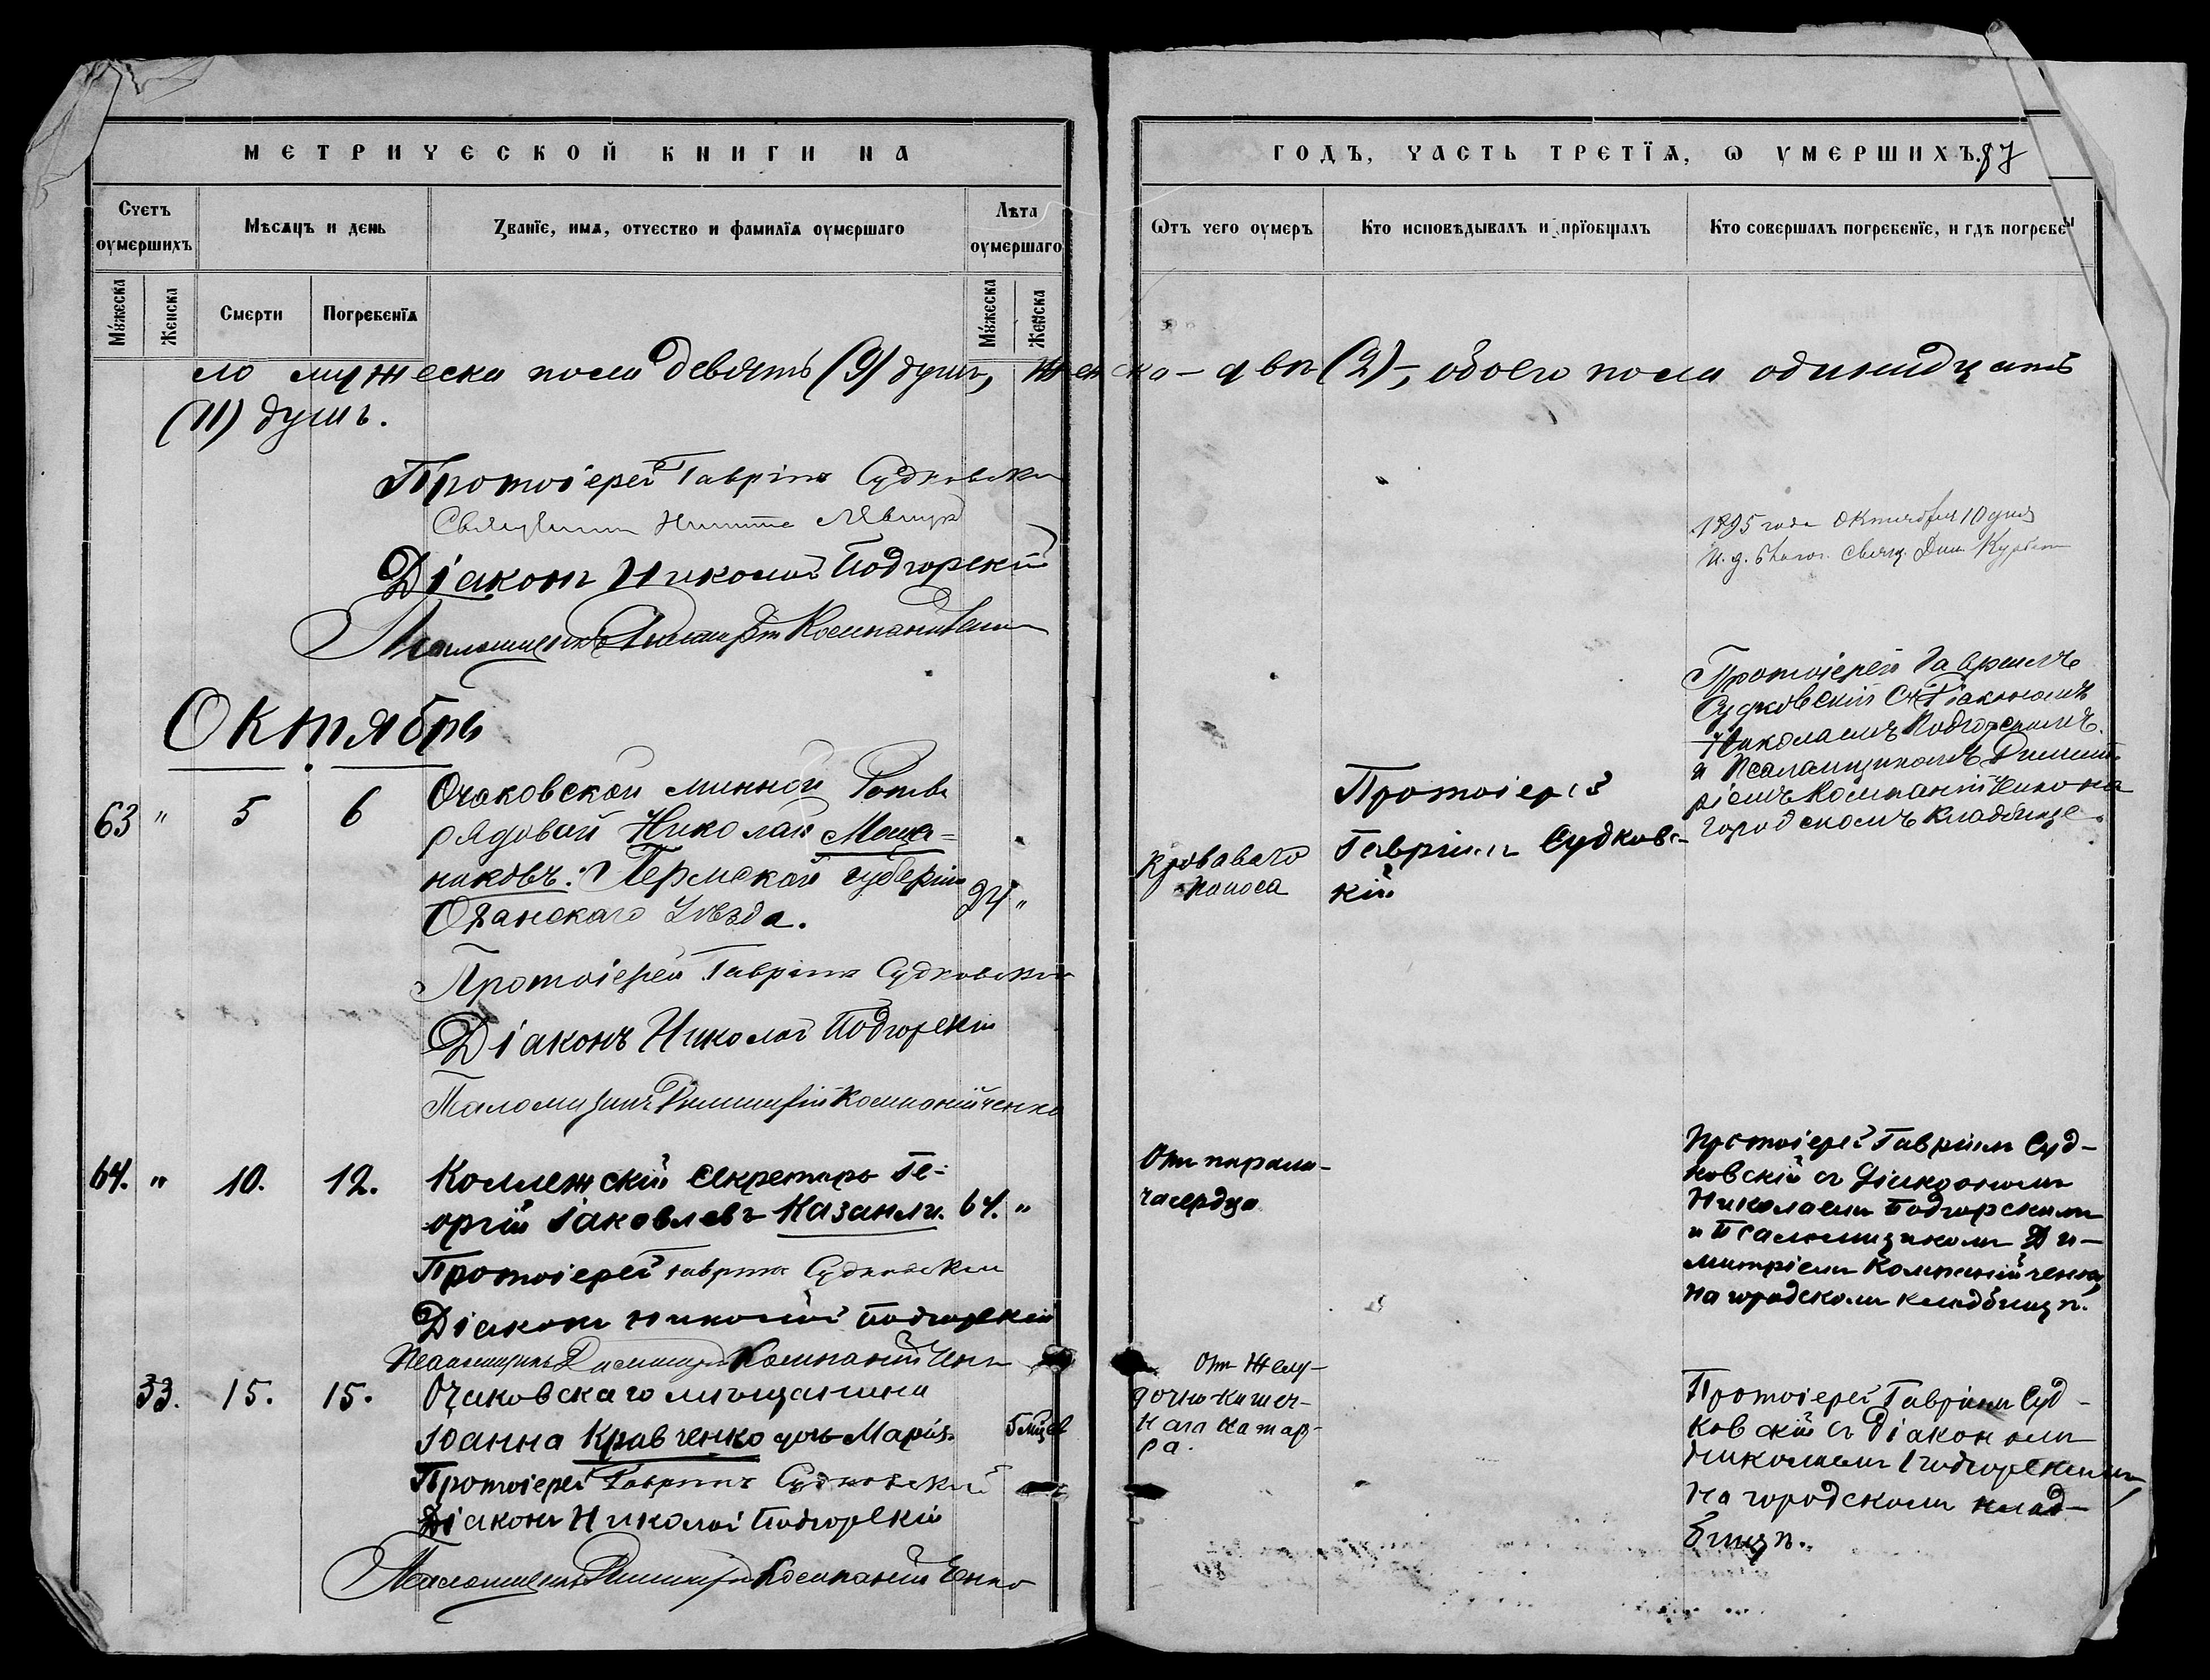 МЕТРИЧЕСКОЙ КНИГИ НА
ГОДЪ, ЧАСТЬ ТРЕТІЯ, Ѡ УМЕРШИХЪ. 87
Счетъ оумершихъ
Мѣсяцъ и день
Званіе, имя, отчество и фамилія оумершаго
Лѣта оумершаго
Ѡтъ чего оумеръ
Кто исповѣдывалъ и пріобщалъ
Кто совершалъ погребеніе, и гдѣ погребены
Мужеска
Женска
Смерти
Погребенія
Мужеска
Женска
ло мужеска пола девять (9) душъ, женска – двѣ (2) –, обоего пола одинадцать
(11) душъ.
Протоіерей Гавріилъ Судковскій
Діаконъ Николай Подгорскій
Псаломщикъ Димитрій Компанійченко
1895 года Октября 10 дня
Октябрь
63 " 5 6
Очаковской минной Роты
рядовой Николай Меша=
никовъ. Пермской губерніи
Оханскаго Уѣзда.
24 "
Кроваваго
поноса
Протоіерей
Гавріилъ Судковс-
кій
Протоіерей Гавріилъ
Судковскій съ Діакономъ
Николаемъ Подгорскимъ
и Псаломщикомъ Димит-
ріемъ Компанійченко на
городскомъ кладбище.
Протоіерей Гавріилъ Судковскій
Діаконъ Николай Подгорскій
Псаломщикъ Димитрій Компанійченко
64. " 10. 12.
Коллежскій Секретарь Ге-
оргій Іаковлевъ Казанли. 64. "
Отъ парали-
ча сердца
Протоіерей Гавріилъ Суд-
ковскій съ Діакономъ
Николаемъ Подгорскимъ
и Псаломщикомъ Ди-
митріемъ Компанійченко,
на городскомъ кладбищѣ.
Протоіерей Гавріилъ Судковскій
Діаконъ Николай Подгорскій
Псаломщикъ Димитрій Компанійченко
33. 15. 15.
Очаковскаго мѣщанина
Іоанна Кравченко дочь Марія.
5 мѣсяц
Отъ желу-
дочно кишеч-
наго катар-
ра.
Протоіерей Гавріилъ Суд-
ковскій съ Діакономъ
Николаемъ Подгорскимъ,
на городскомъ клад-
бищѣ.
Протоіерей Гавріилъ Судковскій
Діаконъ Николай Подгорскій
Псаломщикъ Димитрій Компанійченко